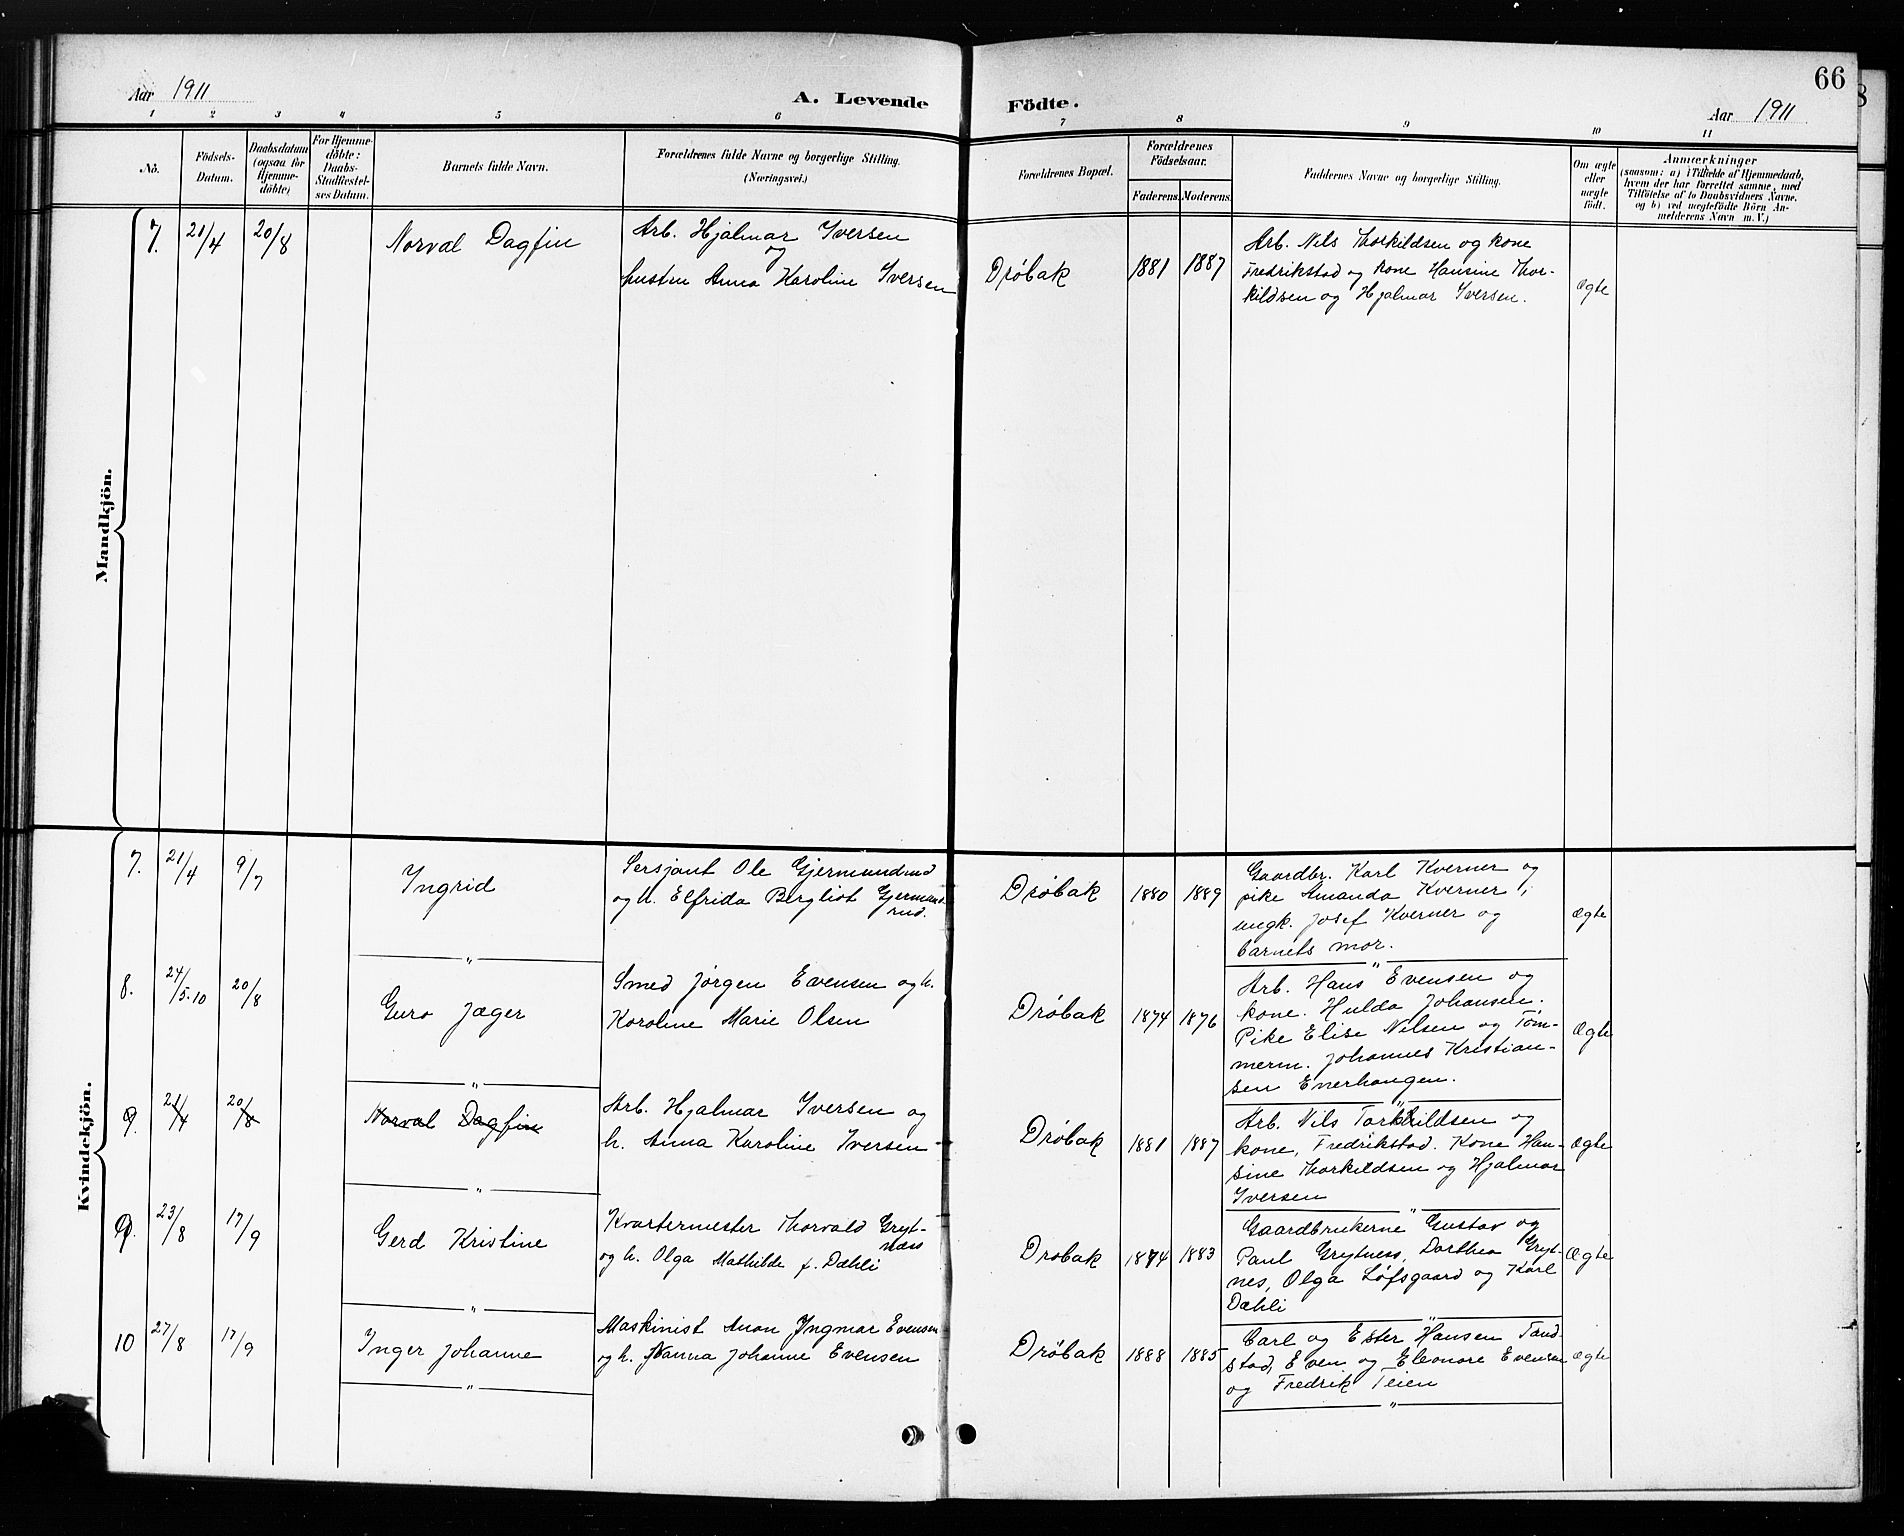 Aar 1911
A. Levende
Födte.
Aar 1911
66
1 2 3 4 5 6 7 8 9 10 11
No.
Födsels-
Datum.
Daabsdatum
(ogsaa for
Hjemme-
döbte)
For Hjemme-
döbte:
Daabs-
Stadfæstel-
ses Datum.
Barnets fulde Navn.
Forældrenes fulde Navne og borgerlige Stilling.
(Næringsvei.)
Forældrenes Bopæl.
Forældrenes
Födselsaar.
Faderens.
Moderens.
Faddernes Navne og borgerlige Stilling.
Om ægte
eller
uægte
født.
Anmærkninger
(saasom: a) i Tilfælde af Hjemmedaab,
hvem der har forrettet samme, med
Tilföielse af to Daabsvidners Navne,
og b) ved uægtefödte Börn An-
melderens Navn m. V.)
Mandkjön.
7. 21/4 20/8
Norval Dagfin
Arb. Hjalmar Iversen
og
hustru Anna Karoline Iversen
Drøbak 1881 1887
Arb. Nils Thorkildsen og kone
Fredrikstad og kone Hansine Thor-
kildsen og Hjalmar Iversen.
Ægte
Kvindekjön.
7. 21/4 9/7
Ingrid
Sersjant Ole Gjermundrud
og h. Elfrida Bergliot Gjermund-
rud.
Drøbak 1880 1889
Gaardbr. Karl Kverner og
pike Amanda Kverner,
ungk. Josef Kverner og
barnets mor.
Ægte
8. 24/5.10 20/8
Guro Jæger
Smed Jørgen Evensen og h.
Karoline Marie Olsen
Drøbak 1874 1876
Arb. Hans Evensen og
kone. Hulda Johansen.
Pike Elise Nilsen og Tøm-
merm. Johannes Kristian-
sen Enerhaugen.
Ægte
9. 21/4 20/8
Norval Dagfin
Arb. Hjalmar Iversen og
h. Anna Karoline Iversen
Drøbak 1881 1887
Arb. Nils Torkildsen og
kone, Fredrikstad. Kone Han-
sine Thorkildsen og Hjalmar
Iversen
Ægte
9. 23/8 17/9
Gerd Kristine
Kvartermester Thorvald Gryt-
næss
og h. Olga Mathilde f. Dæhli
Drøbak 1874 1883
Gaardbrukerne Gustav og
Paul Grytness, Dorthea Gryt-
nes, Olga Løfsgaard og Karl
Dæhli
Ægte
10 27/8 17/9
Inger Johanne
Maskinist Anon Ingmar Evensen
og h. Nanna Johanne Evensen
Drøbak 1888 1885
Carl og Ester Hansen Tand-
stad, Even og Eleonore Evensen
og Fredrik Teien
Ægte